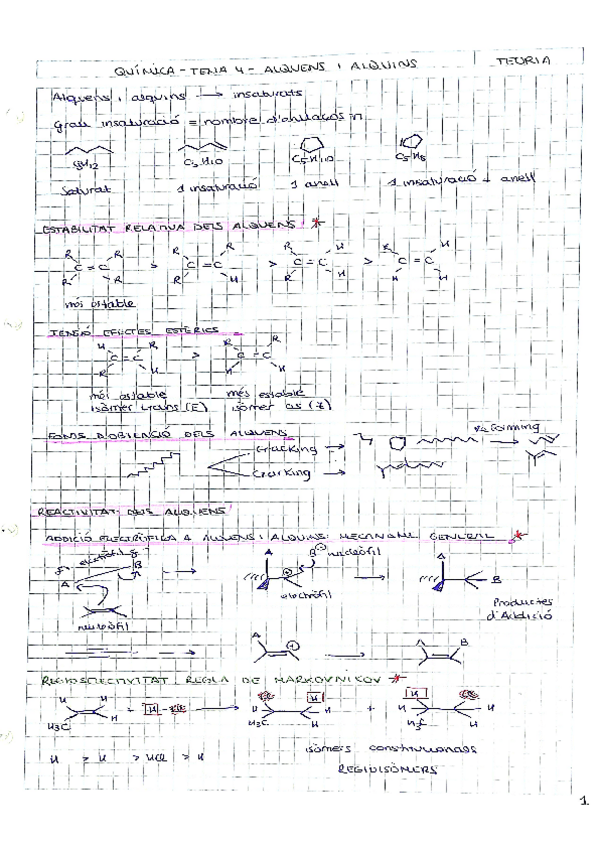 QUÍMICA - TEMA 4 - ALQUENS I ALQUINS TEORIA
Alquens i alquins → insaturats
Grau insaturació = nombre d'enllaços π
C5H10 C5H10 C5H8
Saturat 1 insaturació 1 anell 1 insaturació + anell
ESTABILITAT RELATIVA DELS ALQUENS *
R R R R R H R H
C = C > C = C > C = C > C = C
R R R H R H H H
més estable
TENSIÓ EFECTES ESTÈRICS
H R R R
C = C > C = C
R H H H
més estable més estable
isòmer trans (E) isòmer cis (Z)
FONTS D'OBTENCIÓ DELS ALQUENS
Cracking
Reforming
Cracking
REACTIVITAT DELS ALQUENS
ADDICIÓ ELECTRÒFILA A ALQUENS I ALQUINS: MECANISME GENERAL *
electròfil
A B
nucleòfil
A B nucleòfil
electròfil
A B
Productes
d'Addició
A
A B
REGIOSELECTIVITAT. REGLA DE MARKOVNIKOV *
H H
H3C H
H
H H
H3C H
+
H H
H3C H
isòmers constitucionals
REGIOISÒMERS
1.